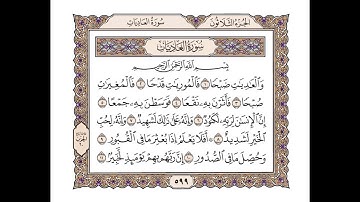 الجزء الثلاثون
سورة العاديات
سورة العاديات
بسم الله الرحمن الرحيم
وَالْعَٰدِيَٰتِ ضَبْحًا ۝١ فَالْمُورِيَٰتِ قَدْحًا ۝٢ فَالْمُغِيرَٰتِ
صُبْحًا ۝٣ فَأَثَرْنَ بِهِۦ نَقْعًا ۝٤ فَوَسَطْنَ بِهِۦ جَمْعًا ۝٥
إِنَّ الْإِنسَٰنَ لِرَبِّهِۦ لَكَنُودٌ ۝٦ وَإِنَّهُۥ عَلَىٰ ذَٰلِكَ لَشَهِيدٌ ۝٧ وَإِنَّهُۥ لِحُبِّ
الْخَيْرِ لَشَدِيدٌ ۝٨ أَفَلَا يَعْلَمُ إِذَا بُعْثِرَ مَا فِي الْقُبُورِ ۝٩
وَحُصِّلَ مَا فِي الصُّدُورِ ۝١٠ إِنَّ رَبَّهُم بِهِمْ يَوْمَئِذٍ لَّخَبِيرٌ ۝١١
٥٩٩